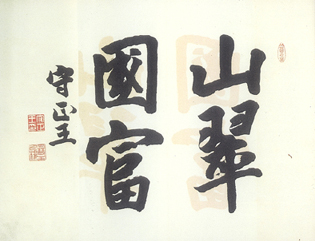 山翠
國富
守正王